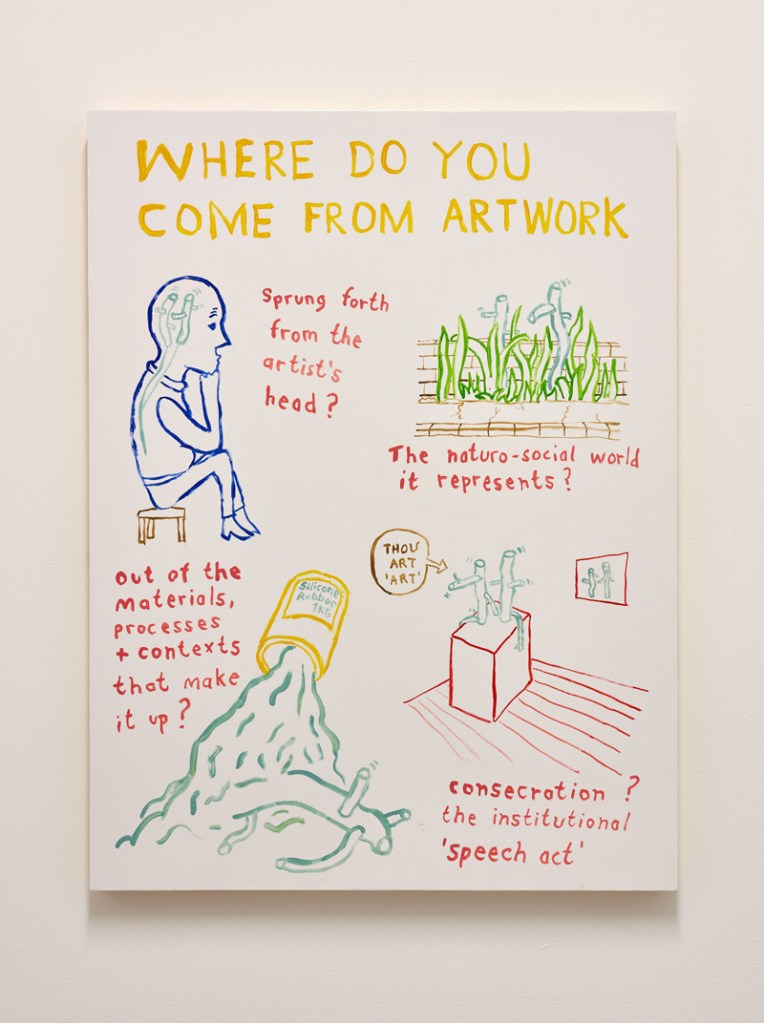 WHERE DO YOU
COME FROM ARTWORK
Sprung forth
from the
artist's
head?
The naturo-social world
it represents?
out of the
materials,
processes
+ contexts
that make
it up?
Silicone
Rubber
1KG
THOU
ART
'ART'
consecration?
the institutional
'speech act'